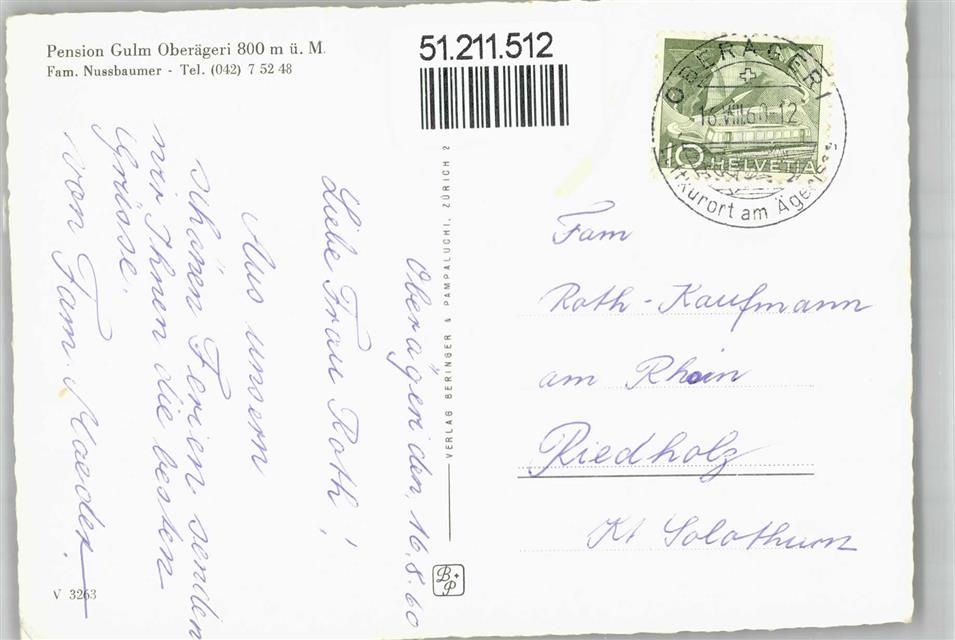 Pension Gulm Oberägeri 800 m ü. M.
Fam. Nussbaumer - Tel. (042) 7 52 48
51.211.512
OBERÄGERI
16.VIII.60-12
Luftkurort am Ägerisee
10 HELVETIA
Oberägeri den, 16.8.60
Liebe Frau Roth!
Aus unsern
schönen Ferien senden
wir Ihnen die besten
Grüsse.
von Fam. Maeder
VERLAG BERINGER & PAMPALUCHI, ZÜRICH 2
B+P
V 3263
Fam
Roth-Kaufmann
am Rhein
Riedholz
Kt Solothurn